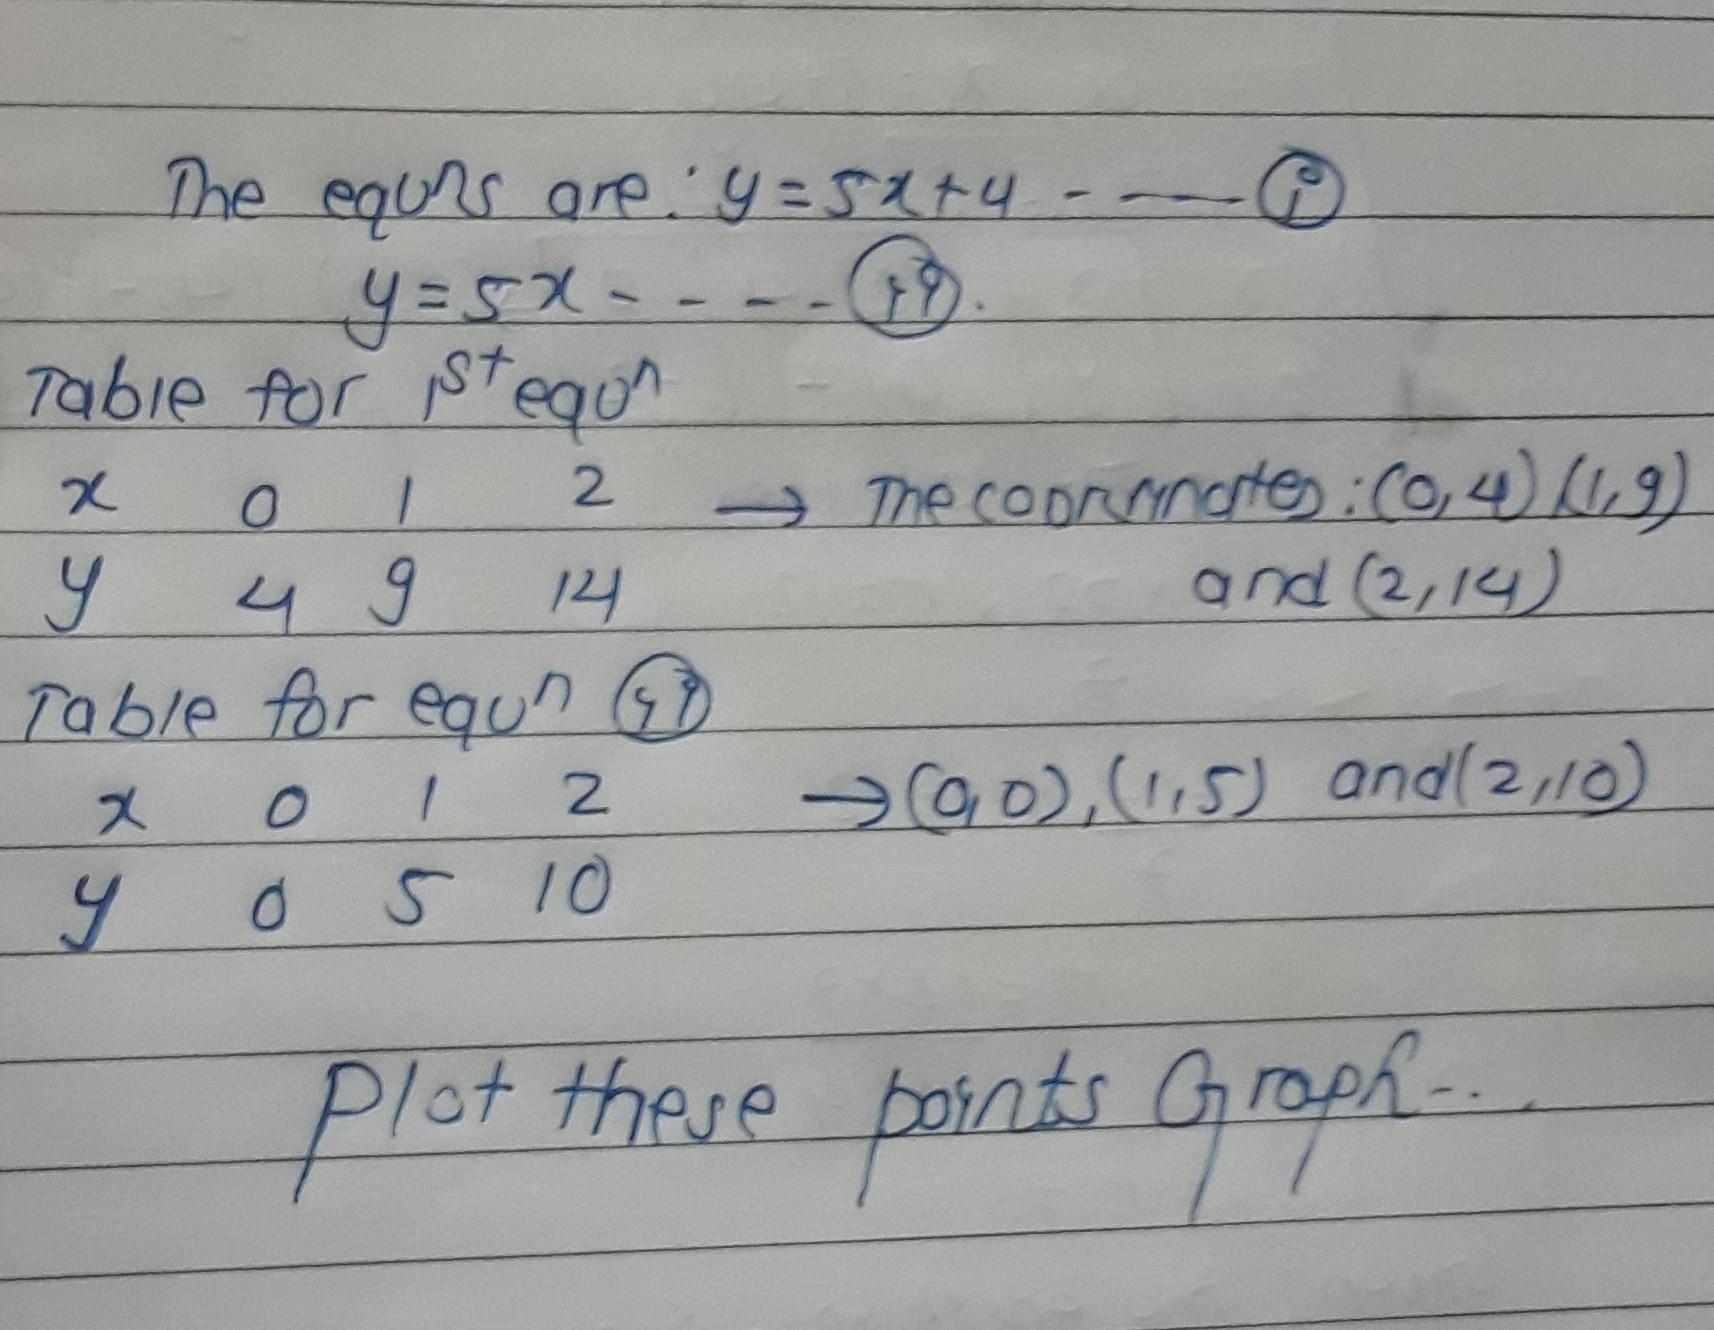 The equns are: y = 5x+4 - —— (i)
y = 5x - - - - (ii).
Table for 1st equn
x 0 1 2 → The coordinates : (0, 4) (1, 9)
y 4 9 14 and (2, 14)
Table for equn (ii)
x 0 1 2 → (0, 0), (1, 5) and (2, 10)
y 0 5 10
Plot these points Graph - . .